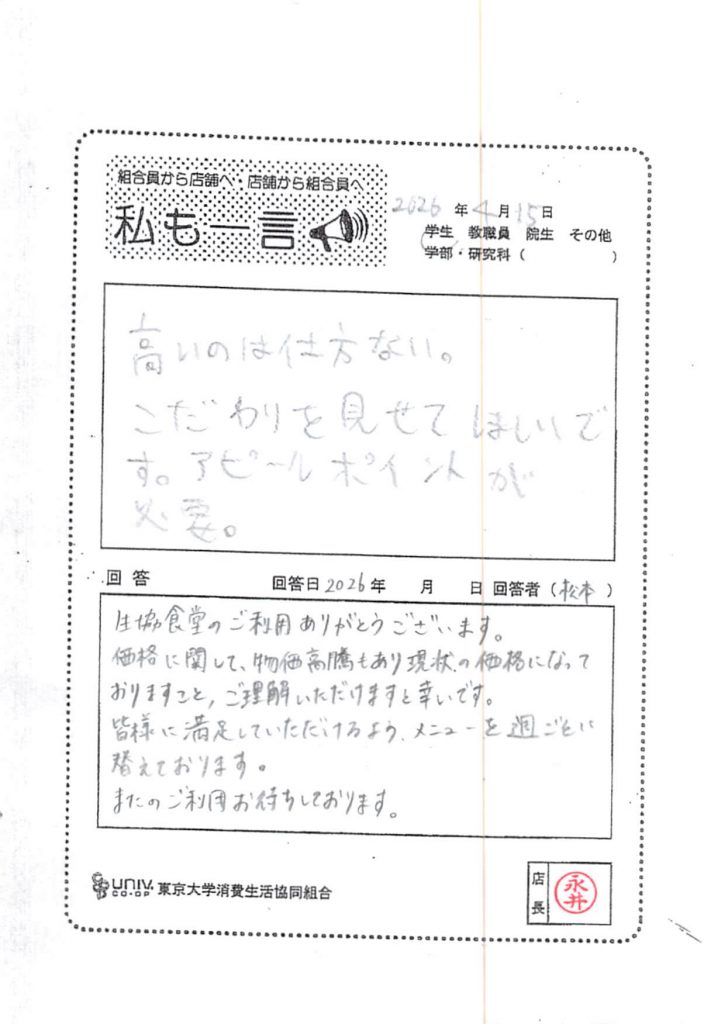 組合員から店舗へ・店舗から組合員へ
私も一言
2026年4月15日
学生 教職員 院生 その他
学部・研究科( )
高いのは仕方ない。
こだわりを見せてほしいで
す。アピールポイントが
必要。
回答 回答日2026年 月 日 回答者(松本)
生協食堂のご利用ありがとうございます。
価格に関して、物価高騰もあり現状の価格になって
おりますこと、ご理解いただけますと幸いです。
皆様に満足していただけるよう、メニューを週ごとに
替えております。
またのご利用お待ちしております。
UNIV.
CO-OP 東京大学消費生活協同組合
店長
永井